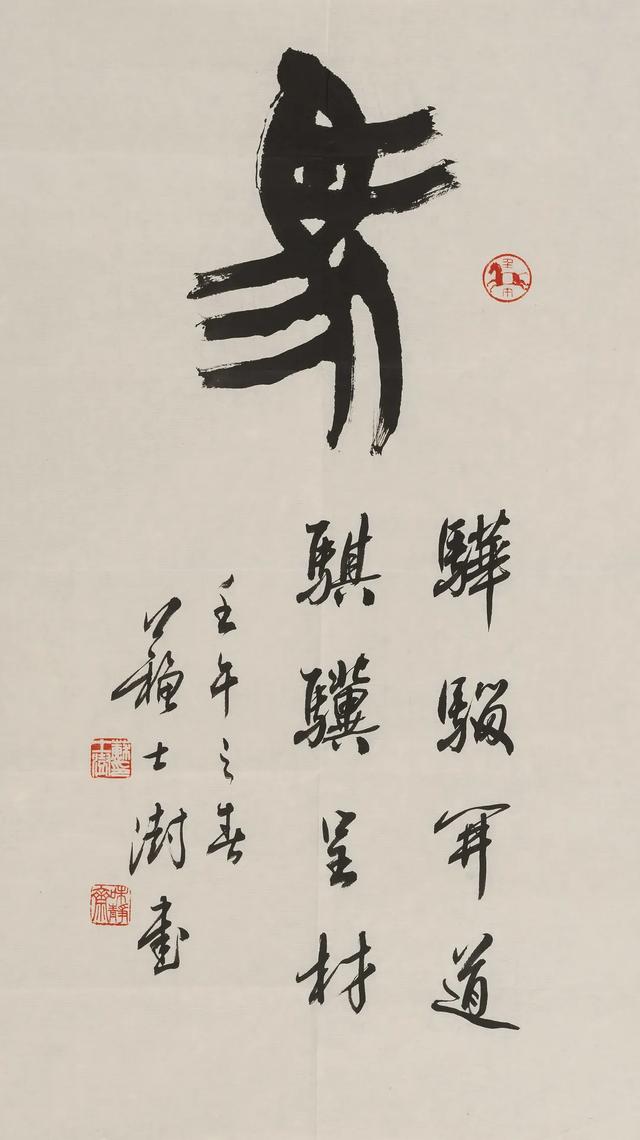 馬
驊騮開道
騏驥呈材
壬午之春
蘇士澍書
味靜齋